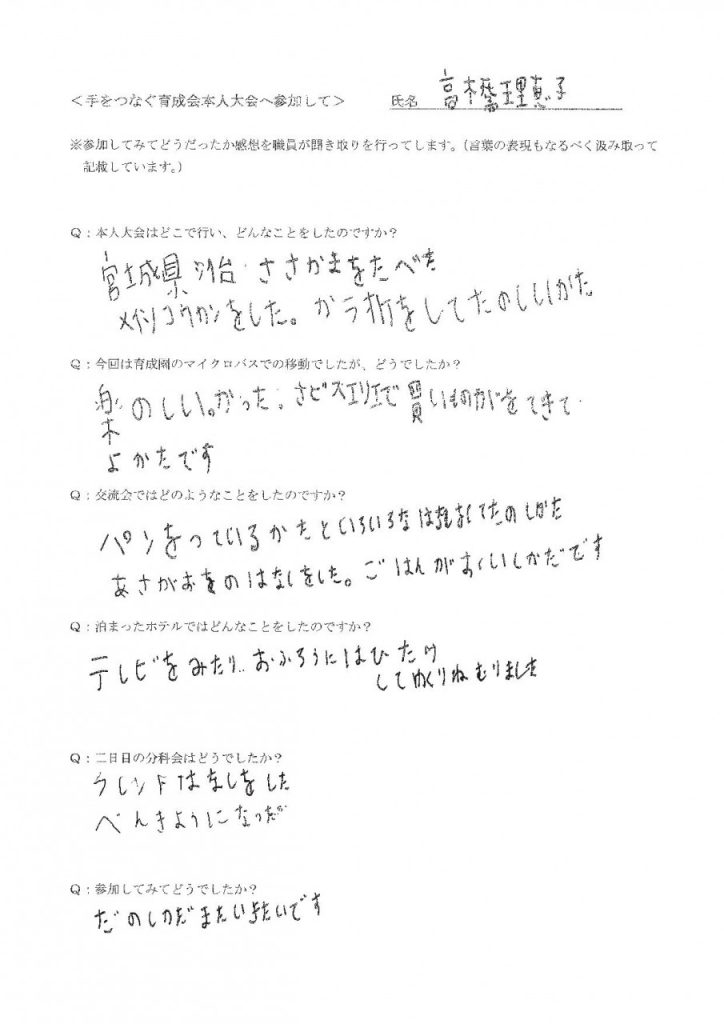 ＜手をつなぐ育成会本人大会へ参加して＞ 氏名 高橋理恵子
※参加してみてどうだったか感想を職員が聞き取りを行ってします。（言葉の表現もなるべく汲み取って
記載しています。）
Q：本人大会はどこで行い、どんなことをしたのですか？
宮城県 台 ささかまをたべた
コウカンをした。がラ をしてたのしいかた
Q：今回は育成園のマイクロバスでの移動でしたが、どうでしたか？
楽のしい。かった。さビスエリエで買いものがをできて
よかたです
Q：交流会ではどのようなことをしたのですか？
パンをっているかたといろいろなは してたのしかた
あさがおをのはなしをした。ごはんがおくいしかだです
Q：泊まったホテルではどんなことをしたのですか？
テレビをみたり..おふろうにはひたり
してゆくりねむりました
Q：二日目の分科会はどうでしたか？
クレントはなしをした
べんきようになっだ
Q：参加してみてどうでしたか？
だのしかだまたいきたいです